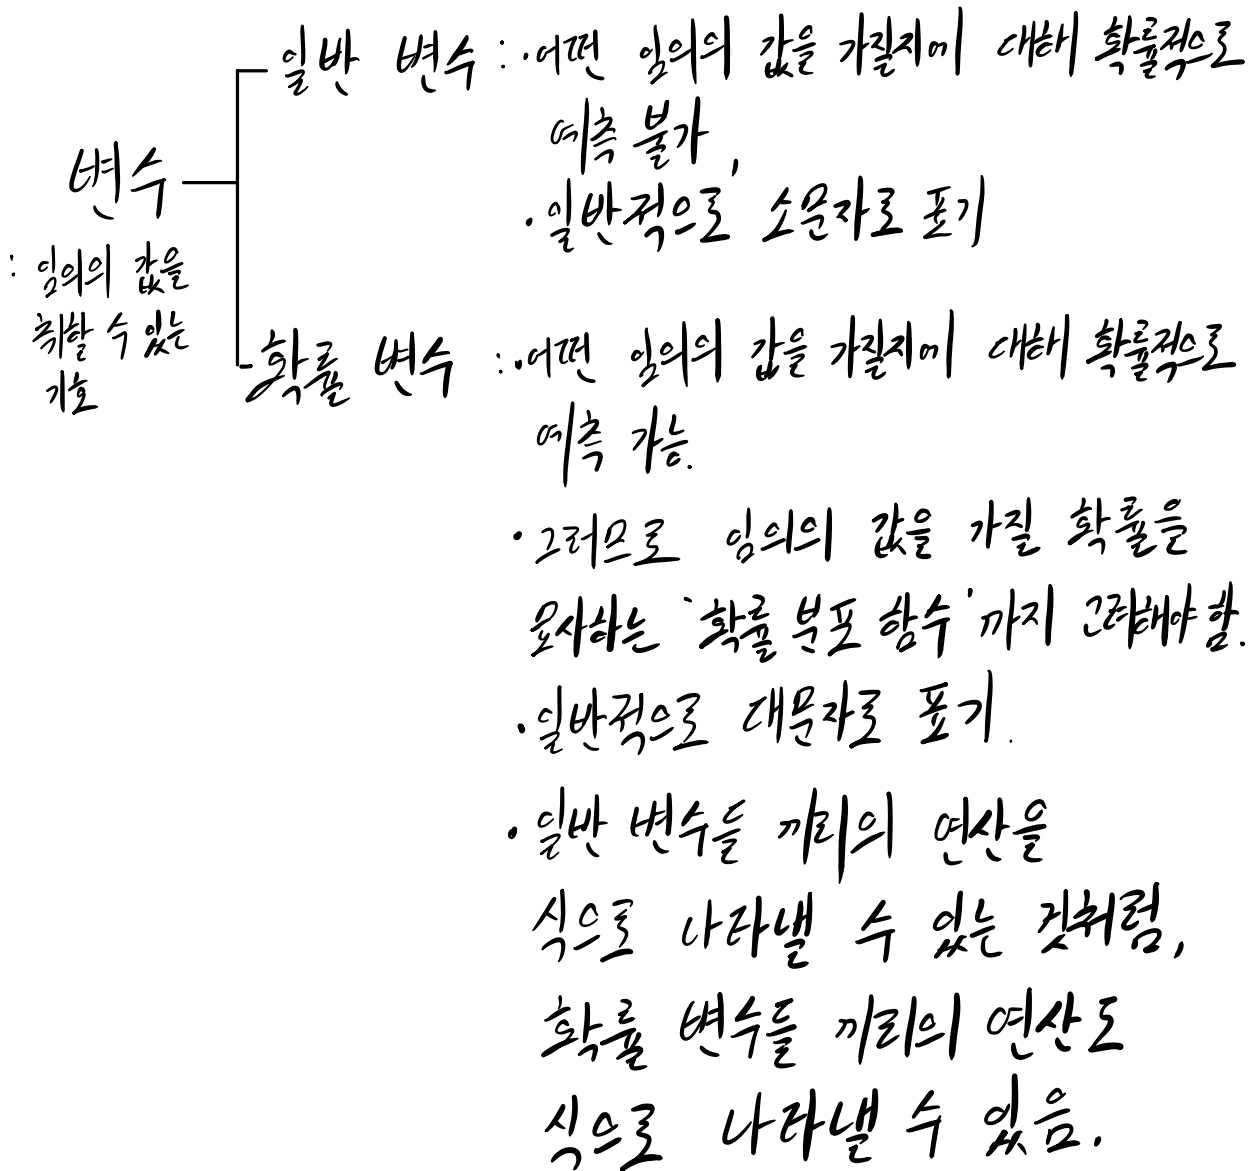 변수
: 임의의 값을
취할 수 있는
기호
일반 변수 : ·어떤 임의의 값을 가질지에 대해 확률적으로
예측 불가,
·일반적으로 소문자로 표기
확률 변수 : ·어떤 임의의 값을 가질지에 대해 확률적으로
예측 가능.
·그러므로 임의의 값을 가질 확률을
묘사하는 '확률 분포 함수'까지 고려해야 함.
·일반적으로 대문자로 표기.
·일반 변수들 끼리의 연산을
식으로 나타낼 수 있는 것처럼,
확률 변수들 끼리의 연산도
식으로 나타낼 수 있음.